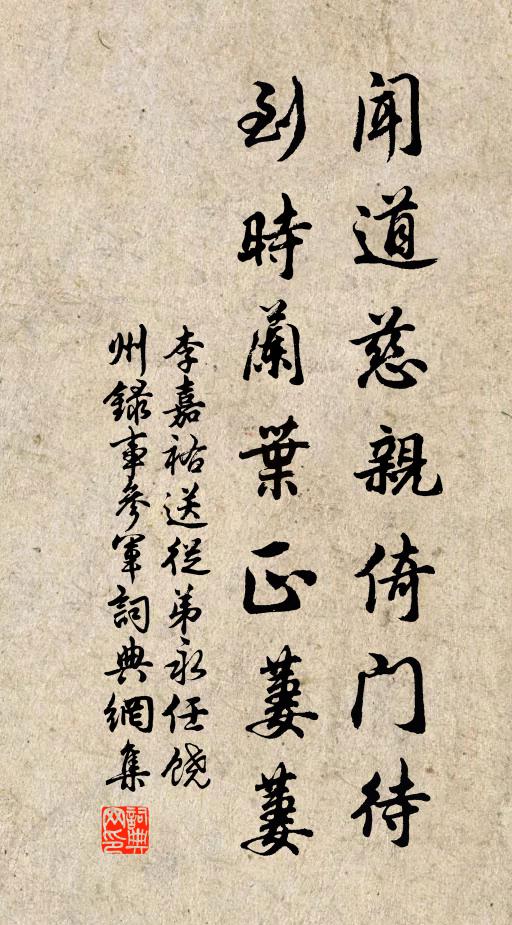 聞道慈親倚門待
到時蘭葉正萋萋
李嘉祐送從弟永任饒
州録事參軍詞典網集
詞典网印